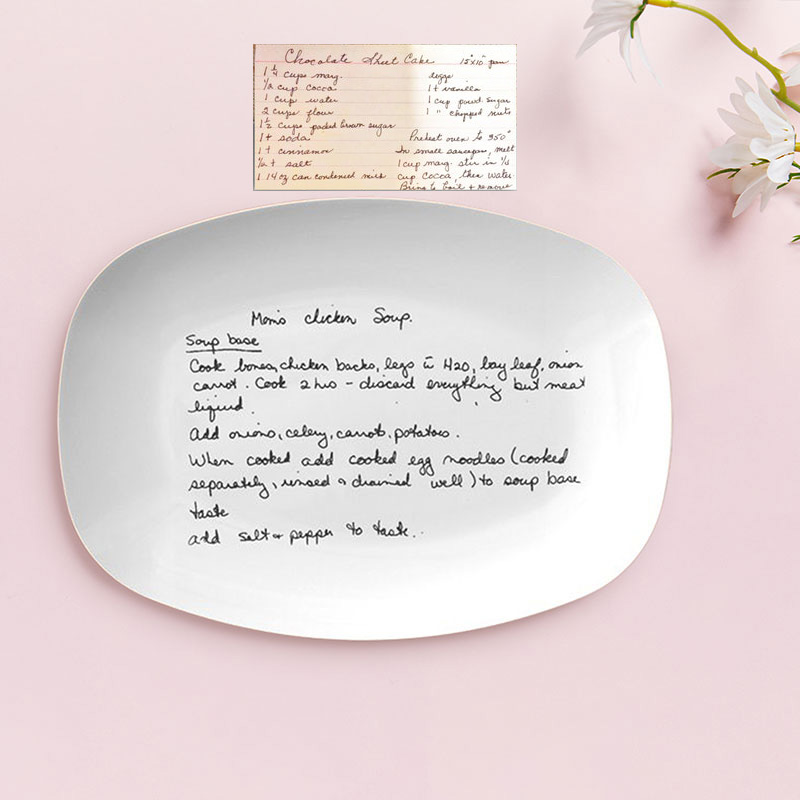 Chocolate Sheet Cake 15"x10" pan
1 1/4 cups marg.
1/2 cup cocoa
1 cup water
2 cups flour
1 1/2 cups packed brown sugar
1 t soda
1 t cinnamon
1/2 t salt
1 14 oz can condensed milk
eggs
1 t vanilla
1 cup powd. sugar
1 " chopped nuts
Preheat oven to 350°
In small saucepan, melt
1 cup marg. stir in 1/2
cup cocoa, then water.
Bring to boil + remove
Mom's chicken Soup.
Soup base
Cook bones, chicken backs, legs c̄ H2O, bay leaf, onion
carrot. Cook 2 hrs - discard everything but meat
liquid.
Add onions, celery, carrots, potatoes.
When cooked add cooked egg noodles (cooked
separately, rinsed & drained well) to soup base
taste
add salt & pepper to taste..